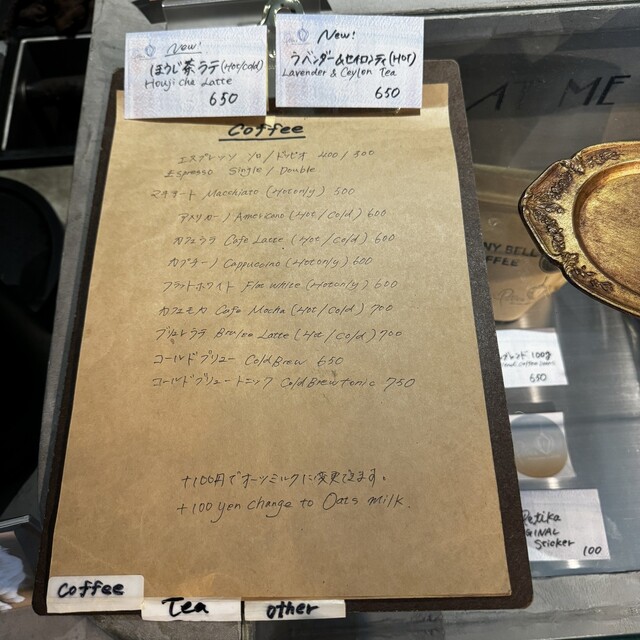 New!
ほうじ茶ラテ(Hot/cold)
Houjicha Latte
650
New!
ラベンダー&セイロンティ(HOT)
Lavender & Ceylon Tea
650
Coffee
エスプレッソ ソロ/ドッピオ 400/500
Espresso Single/Double
マキアート Macchiato (Hot only) 500
アメリカーノ Americano (Hot/Cold) 600
カフェラテ Cafe Latte (Hot/Cold) 600
カプチーノ Cappuccino (Hot only) 600
フラットホワイト Flat White (Hot only) 600
カフェモカ Cafe Mocha (Hot/Cold) 700
ブリュレラテ Brulee Latte (Hot/Cold) 700
コールドブリュー Cold Brew 650
コールドブリュートニック Cold Brew tonic 750
+100円でオーツミルクに変更できます。
+100 yen change to Oats milk.
Coffee
Tea
other
AT ME
NY BELL
FFEE
ブレンド 100g
650
Petika
GINAL
Sticker
100